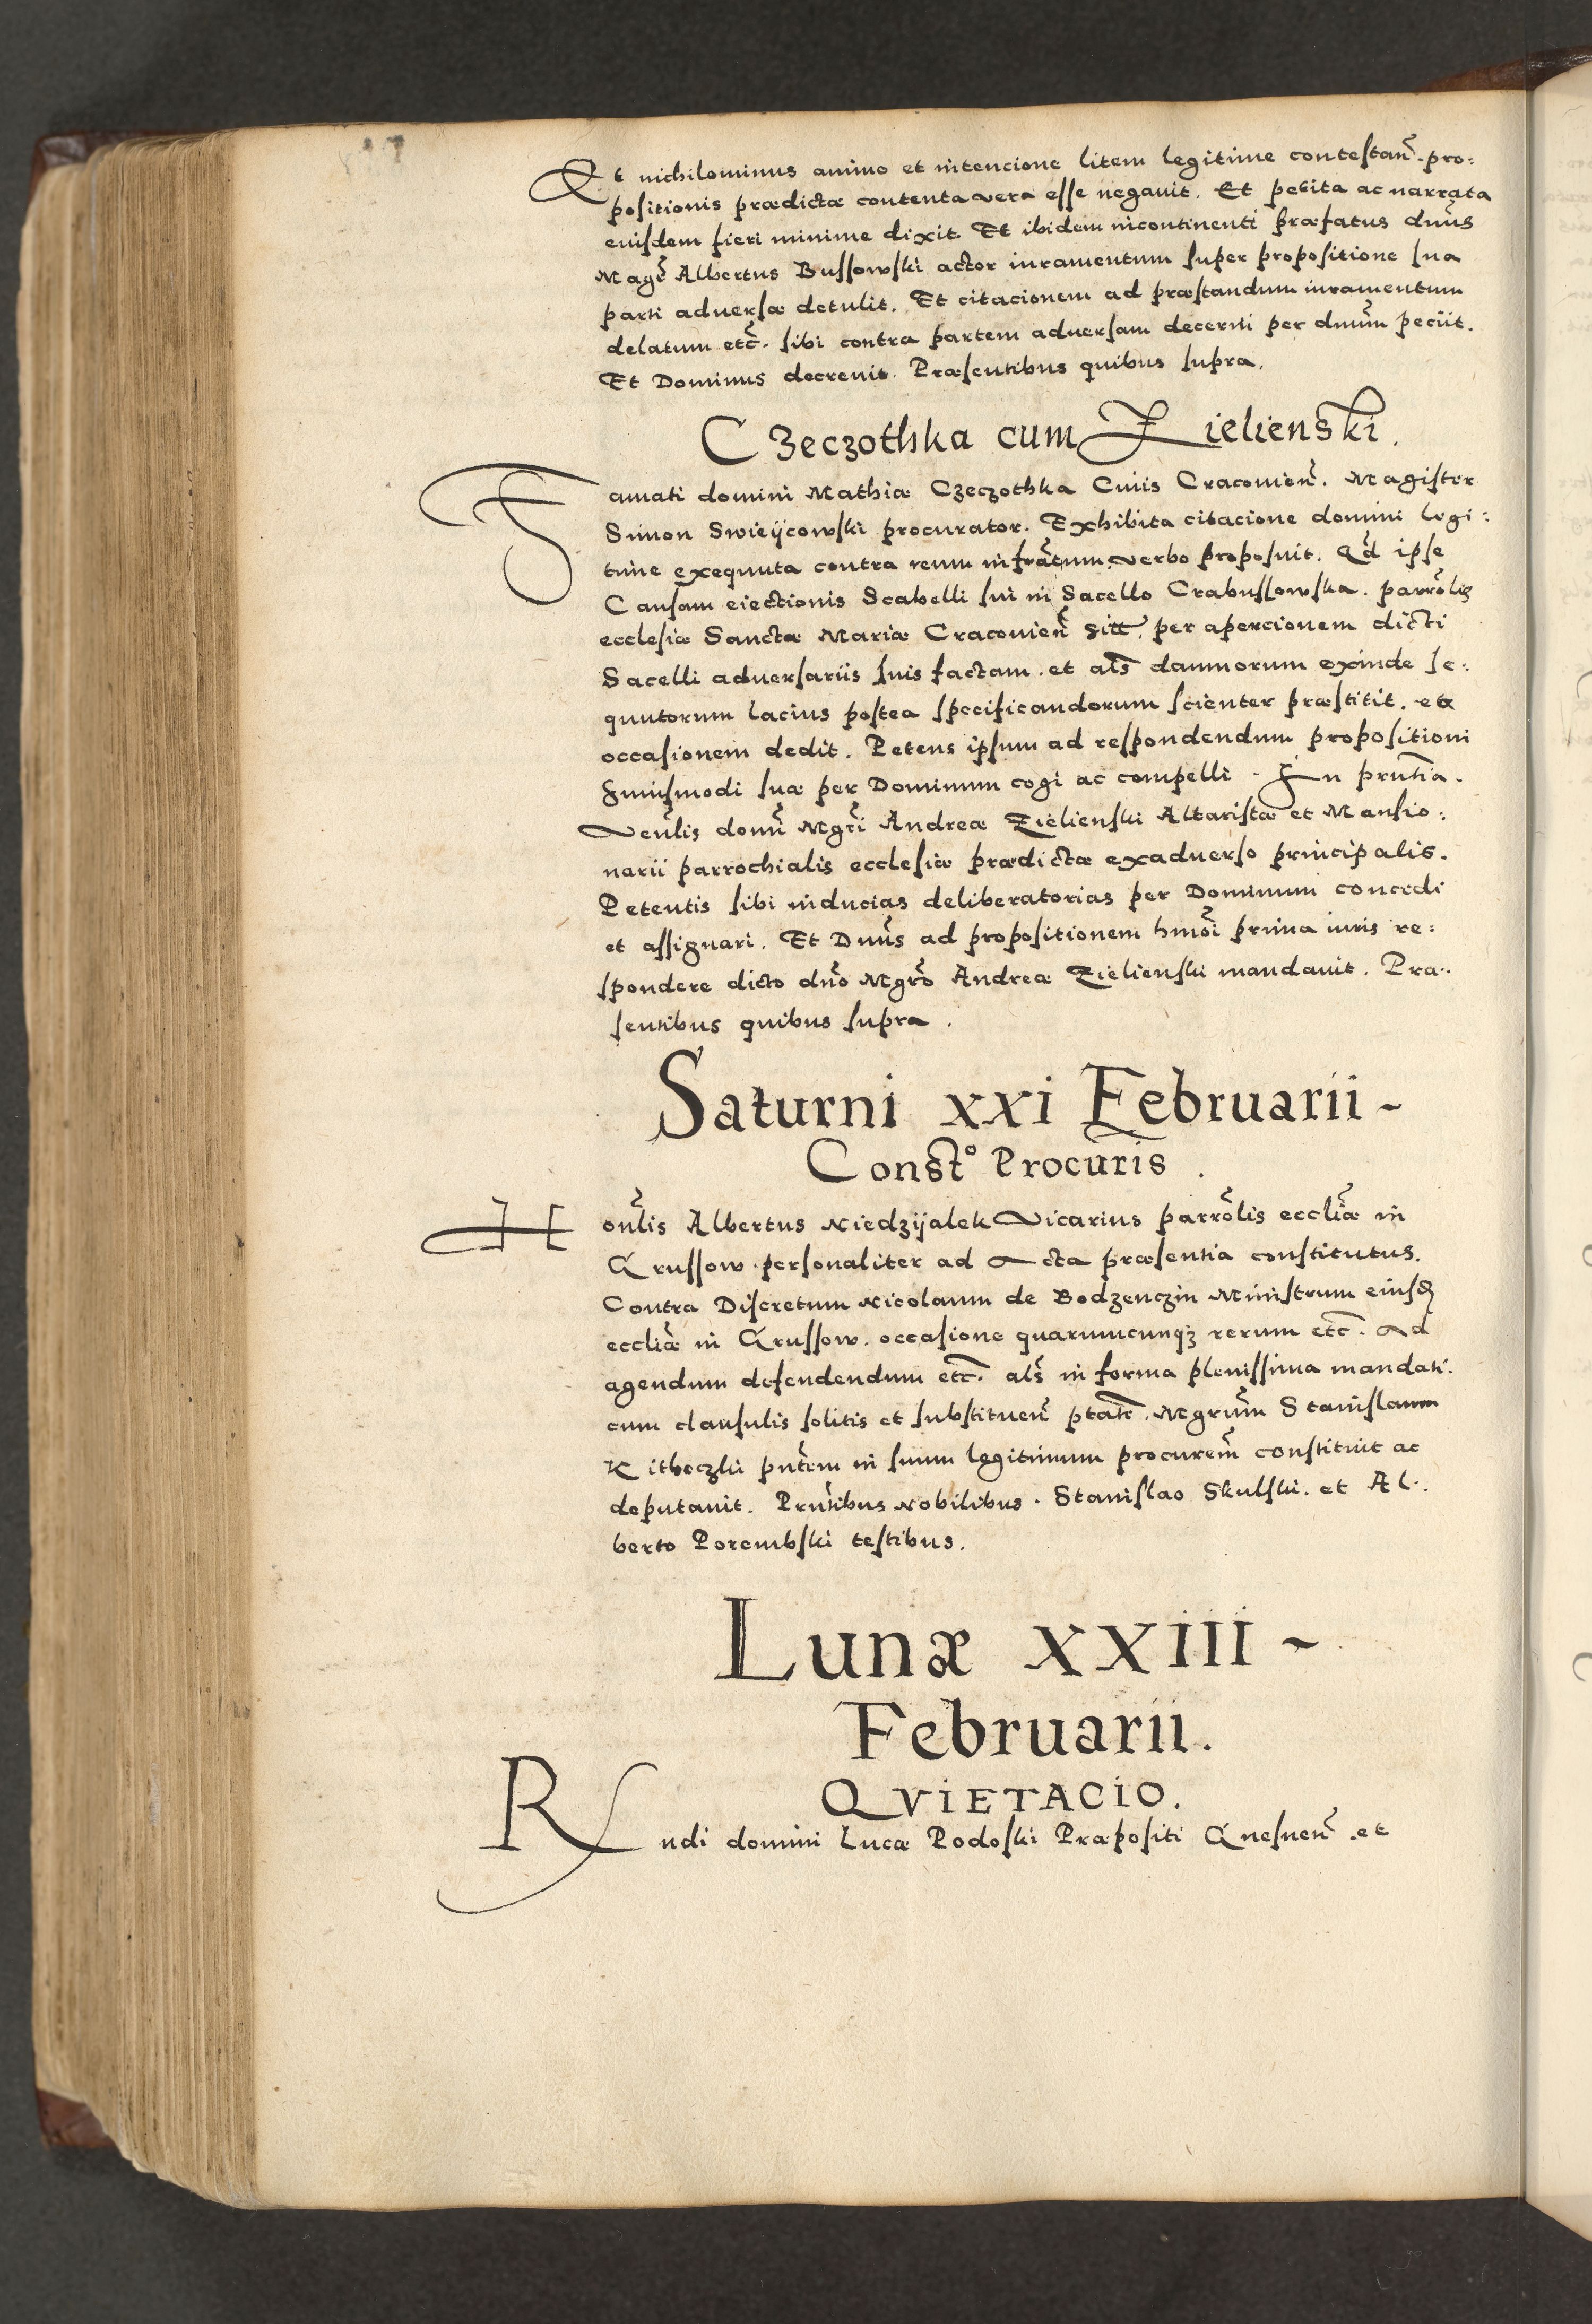 Et nichilominus animo et intencione litem legitime contestan̄. pro:
positionis prædictæ contenta vera esse negauit. Et petita ac narrata
eiusdem fieri minime dixit. Et ibidem incontinenti præfatus dn̄us
Magr̄ Albertus Bussowski actor iuramentum super propositione sua
parti aduersæ detulit. Et citacionem ad præstandum iuramentum
delatum etc̄. sibi contra partem aduersam decerni per dnūm peciit.
Et Dominus decreuit. Præsentibus quibus supra.
Czeczothka cum Zielienski.
Famati domini Mathiæ Czeczothka Ciuis Cracouien̄. Magister
Simon Swieÿcowski procurator. Exhibita citacione domini legi:
time exequuta contra reum infrātum verbo proposuit. Qd̄ ipse
Causam eiectionis Scabelli sui in Sacello Crabussowska. parrōlis
ecclesiæ Sanctæ Mariæ Cracouien̄ sitt. per apercionem dicti
Sacelli aduersariis suis factam. et al̄s damnorum exinde se:
quutorum lacius postea specificandorum scienter præstitit. et
occasionem dedit. Petens ipsum ad respondendum propositioni
huiusmodi suæ per Dominum cogi ac compelli. In prn̄tia.
Ven̄lis domī Mgr̄i Andreæ Zielienski Altaristæ et Mansio:
narii parrochialis ecclesiæ prædictæ exaduerso principalis.
Petentis sibi inducias deliberatorias per Dominum concedi
et assignari. Et Dnūs ad propositionem hmōi prima iuris re:
spondere dicto dn̄o Mgr̄o Andreæ Zielienski mandauit. Præ:
sentibus quibus supra.
Saturni xxi Februarii -
Const° Procur̄is.
Hon̄lis Albertus Niedzijalek Vicarius parrōlis eccliǣ in
Grussow personaliter ad Acta præsentia constitutus.
Contra Discretum Nicolaum de Bodzenczin Ministrum eiusd
eccliǣ in Grussow. occasione quarumcunq3 rerum etc̄. Ad
agendum defendendum etc̄. al̄s in forma plenissima mandati.
cum clausulis solitis et substituen̄ ptāte. Mgrūm Stanislaum
Kitheczki pn̄tem in suum legitimum procurem̄ constituit ac
deputauit. Prn̄tibus Nobilibus. Stanislao Skulski. et Al:
berto Porembski testibus.
Lunæ xxiii -
Februarii.
QVIETACIO.
Rndi domini Lucæ Podoski Præpositi Gnesnen̄. et